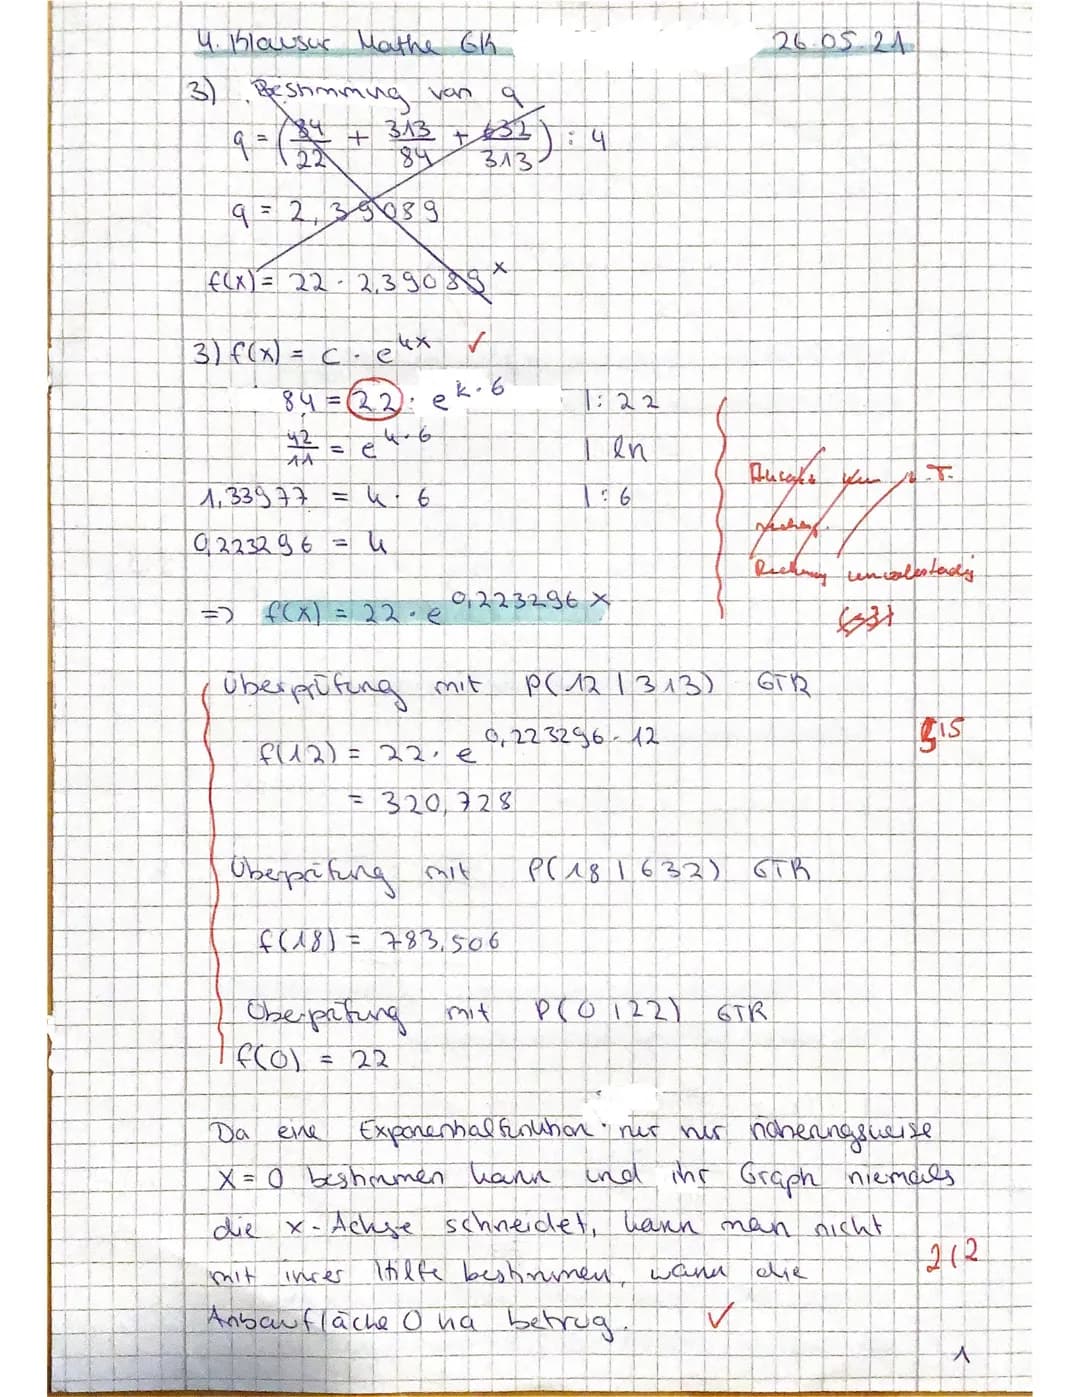 4. Klausur Mathe GK 26.05.21
3) Bestimmung von q
q = (84/22 + 313/84 + 632/313) : 4
q = 2,39089
f(x) = 22 · 2,39089^x
3) f(x) = c · e^kx ✓
84 = 22 · e^k·6 | : 22
42/11 = e^k·6 | ln
1,33977 = k · 6 | : 6
0,223296 = k
Rechnung unvollständig
=> f(x) = 22 · e^0,223296 x
Überprüfung mit P(12 | 313) GTR
f(12) = 22 · e^0,223296 · 12
= 320,728
5/5
Überprüfung mit P(18 | 632) GTR
f(18) = 783,506
Überprüfung mit P(0 | 22) GTR
f(0) = 22
Da eine Exponentialfunktion nur näherungsweise
x = 0 bestimmen kann und ihr Graph niemals
die x-Achse schneidet, kann man nicht
mit ihrer Hilfe bestimmen, wann die
2/2
Anbaufläche 0 ha betrug. ✓
1